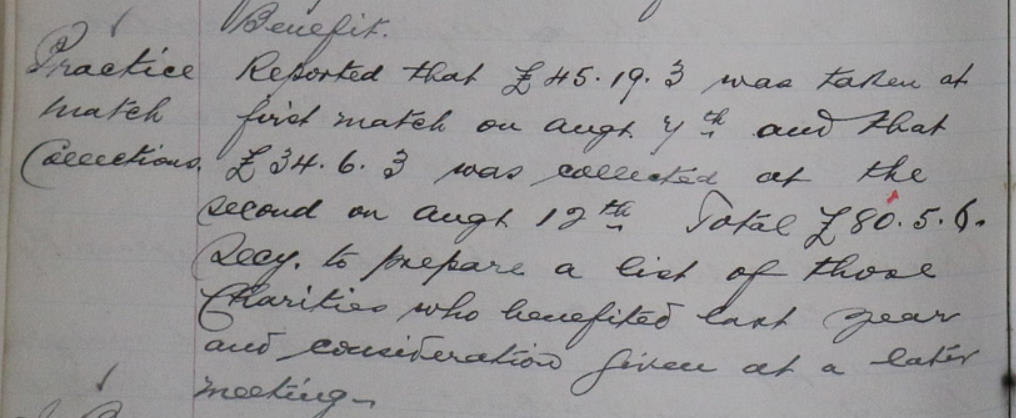 Benefit.
Practice Reported that £45.19.3 was taken at
Match first match on Augt. 7th and that
Collections. £34.6.3 was collected at the
second on Augt 12th Total £80.5.6.
Secy. to prepare a list of those
Charities who benefited last year
and consideration given at a later
meeting.